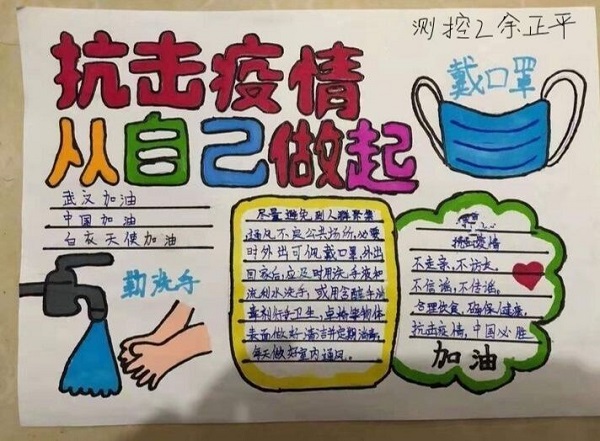 测控2余正平
抗击疫情
从自己做起
戴口罩
武汉加油
中国加油
白衣天使加油
勤洗手
尽量避免到人群密集
通风不良公共场所,必要
时外出可佩戴口罩,外出
回家后,应及时用洗手液和
流动水洗手,或用含醇手消
毒剂行手卫生,桌椅等物体
表面做好清洁并定期消毒,
每天做好室内通风。
抗击疫情
不走亲,不访友,
不信谣,不传谣,
合理饮食,确保健康,
抗击疫情,中国必胜
加油